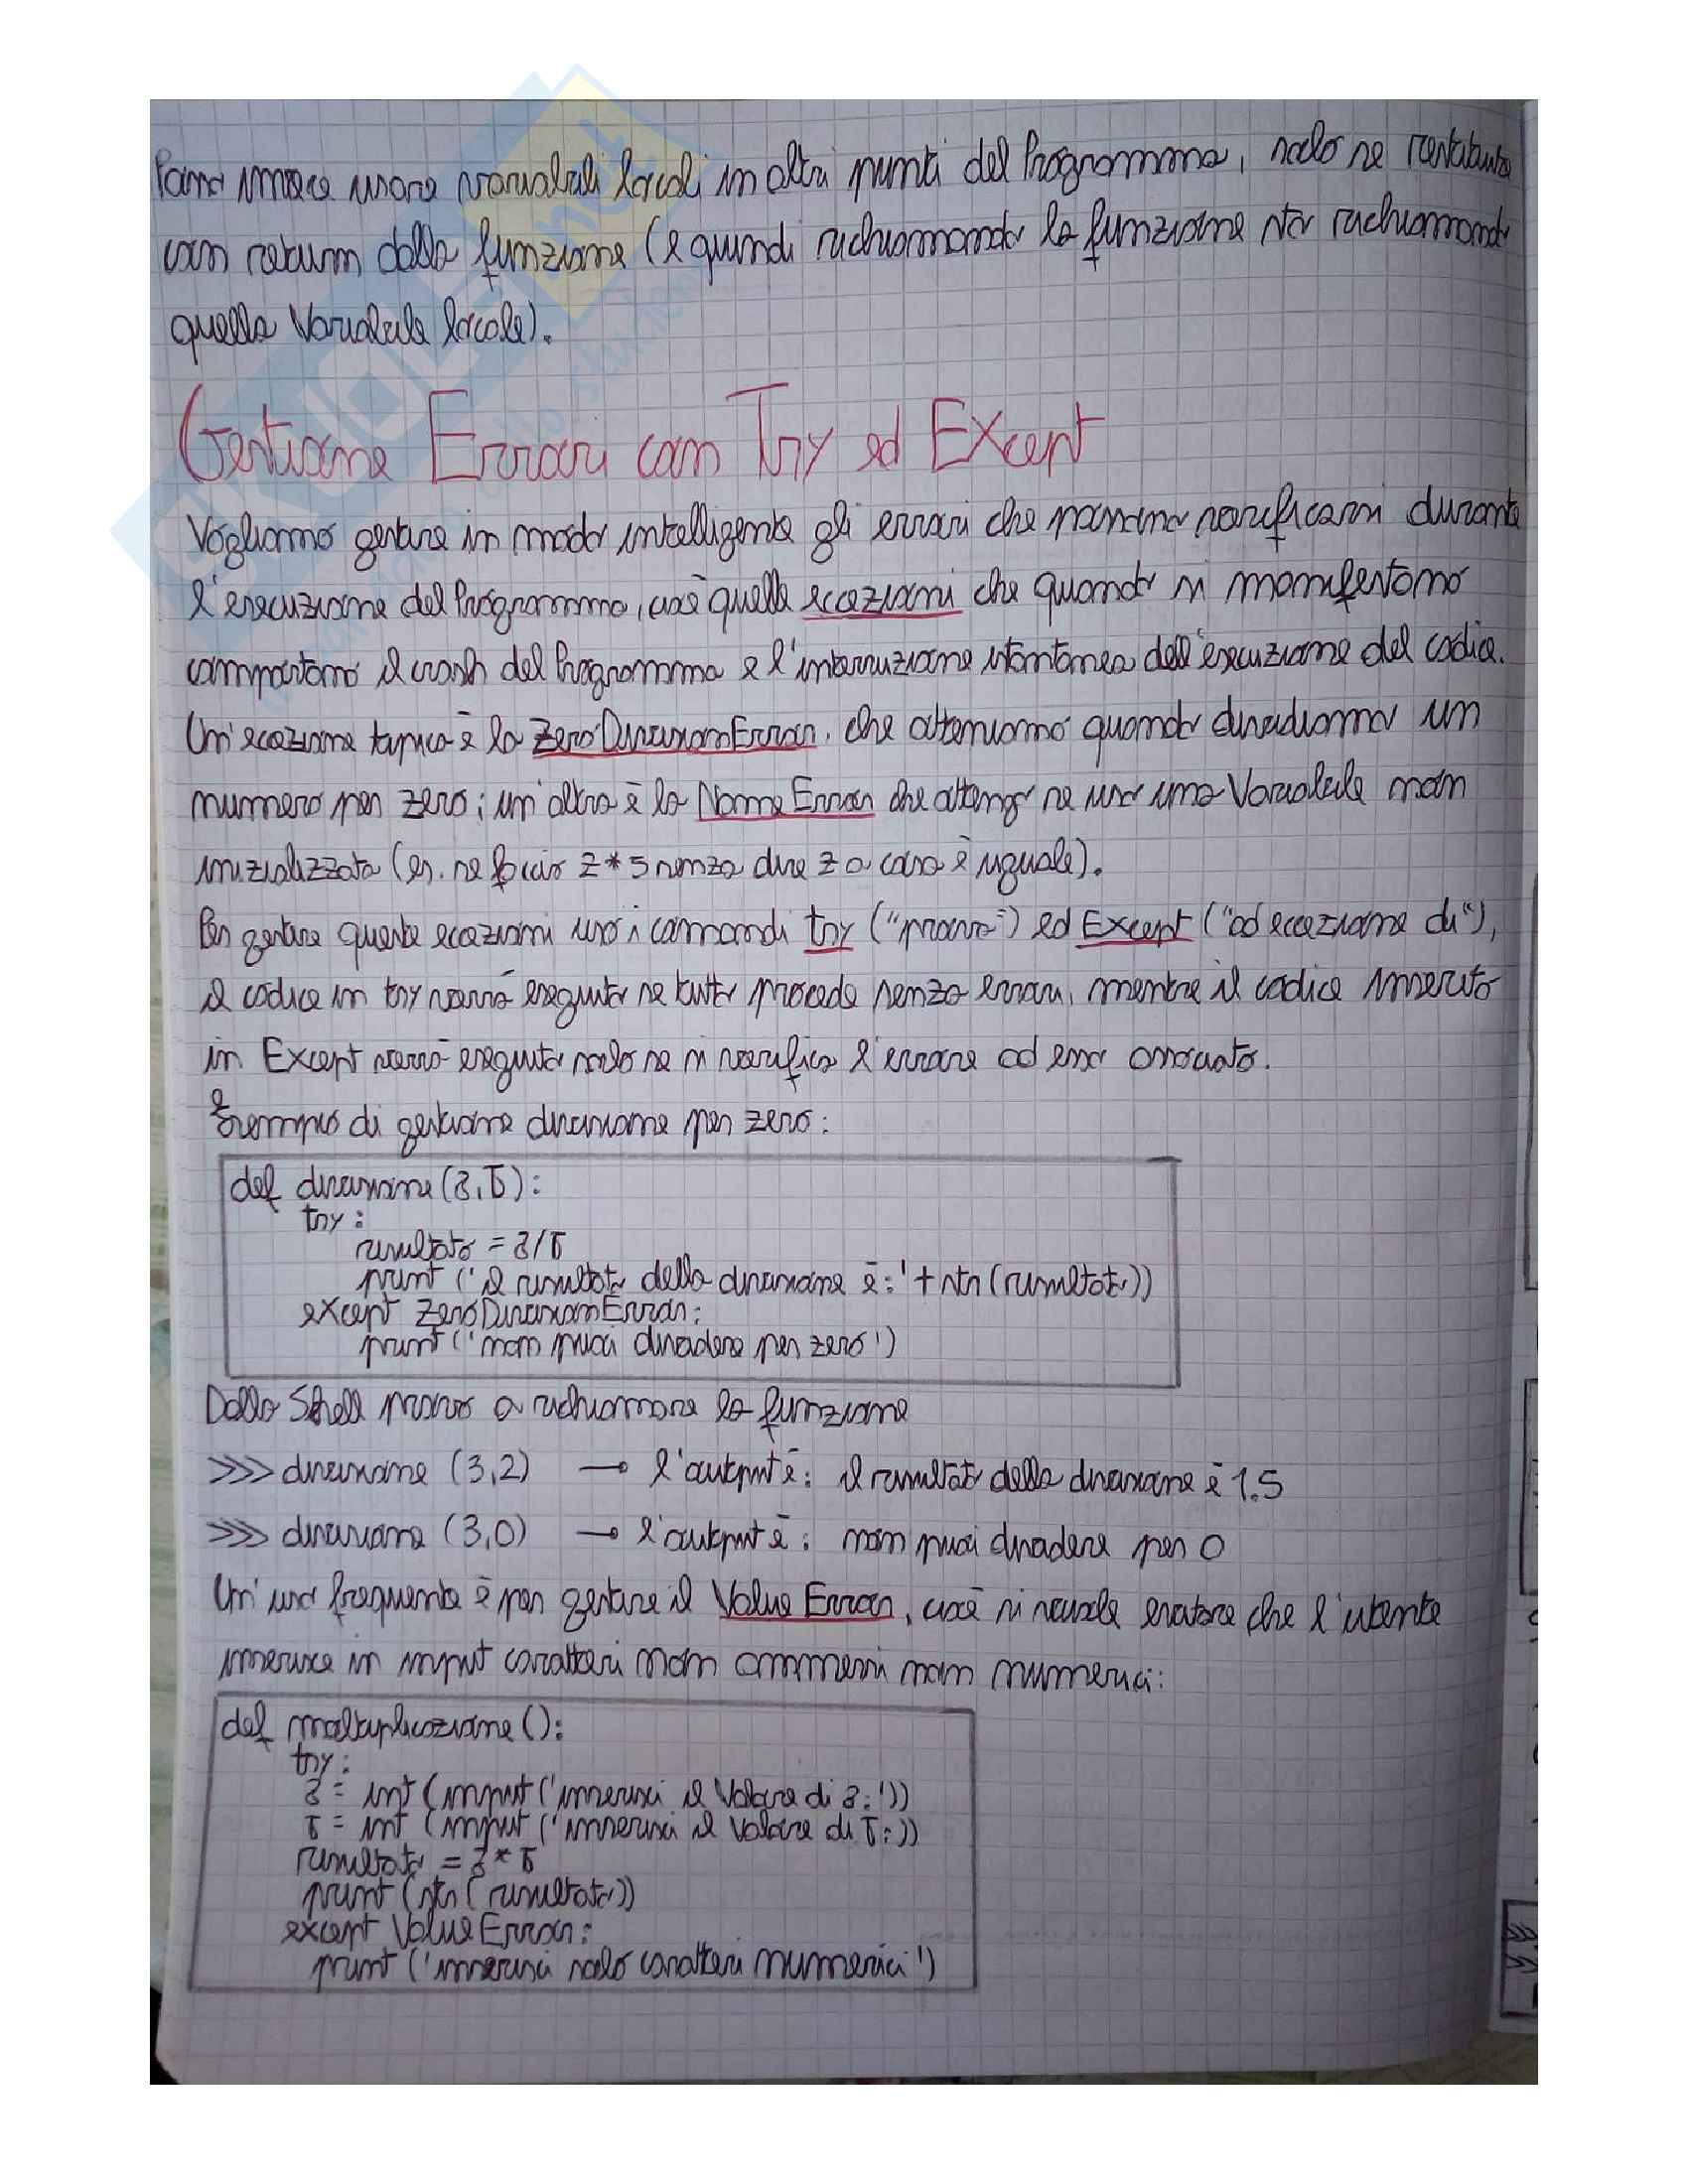 Posso invece usare variabili locali in altri punti del Programma, solo se restituite
con return dalla funzione (e quindi richiamando la funzione sto richiamando
quella Variabile locale).
Gestione Errori con Try ed EXcept
Vogliamo gestire in modo intelligente gli errori che possono verificarsi durante
l'esecuzione del Programma, cioè quelle eccezioni che quando si manifestano
comportano il crash del Programma e l'interruzione istantanea dell'esecuzione del codice.
Un'eccezione tipica è la ZeroDivisionError, che otteniamo quando dividiamo un
numero per zero; un'altra è la Name Error che ottengo se uso una Variabile non
inizializzata (es. se faccio z*5 senza dire z a cosa è uguale).
Per gestire queste eccezioni uso i comandi try ("prova") ed Except ("ad eccezione di"),
il codice in try verrà eseguito se tutto procede senza errori, mentre il codice inserito
in Except verrà eseguito solo se si verifica l'errore ad esso associato.
Esempio di gestione divisione per zero:
def divisione(a,b):
try:
risultato = a/b
print ('il risultato della divisione è:'+str(risultato))
except ZeroDivisionError:
print('non puoi dividere per zero')
Dalla Shell provo a richiamare la funzione
>>> divisione (3,2) → l'output è: il risultato della divisione è 1.5
>>> divisione (3,0) → l'output è: non puoi dividere per 0
Un uso frequente è per gestire il Value Error, cioè si vuole evitare che l'utente
inserisce in input caratteri non ammessi non numerici:
def moltiplicazione():
try:
a = int (input('inserisci il Valore di a:'))
b = int (input ('inserisci il valore di b:))
risultato = a*b
print (str(risultato))
except ValueError:
print ('inserisci solo caratteri numerici')